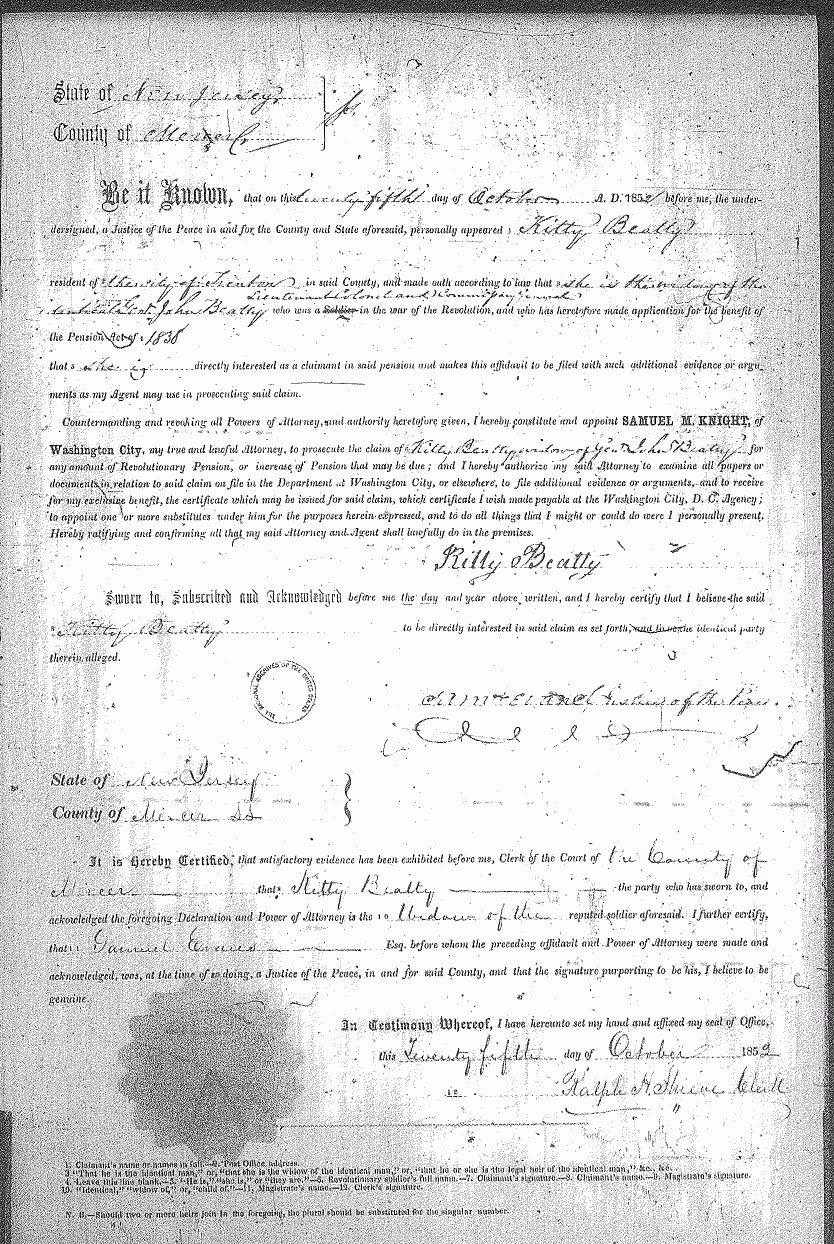 State of New Jersey
County of Mercer
Be it Known, that on this twenty fifth day of October A. D. 1852 before me, the under-
dersigned, a Justice of the Peace in and for the County and State aforesaid, personally appeared 1 Kitty Beatty
resident of the city of Trenton in said County, and made oath according to law that she is the widow of the
Lieutenant Colonel and Commissary General
identical John Beatty who was a Soldier in the war of the Revolution, and who has heretofore made application for the benefit of
the Pension Act of 1838
that 5 she is directly interested as a claimant in said pension and makes this affidavit to be filed with such additional evidence or argu-
ments as my Agent may use in prosecuting said claim.
Countermanding and revoking all Powers of Attorney, and authority heretofore given, I hereby constitute and appoint SAMUEL M. KNIGHT, of
Washington City, my true and lawful Attorney, to prosecute the claim of Kitty Beatty widow of Genl John Beatty for
any amount of Revolutionary Pension, or increase of Pension that may be due; and I hereby authorize my said Attorney to examine all papers or
documents in relation to said claim on file in the Department at Washington City, or elsewhere, to file additional evidence or arguments, and to receive
for my exclusive benefit, the certificate which may be issued for said claim, which certificate I wish made payable at the Washington City, D. C. Agency;
to appoint one or more substitutes under him for the purposes herein expressed, and to do all things that I might or could do were I personally present,
Hereby ratifying and confirming all that my said Attorney and Agent shall lawfully do in the premises.
Kitty Beatty
Sworn to, Subscribed and Acknowledged before me the day and year above written, and I hereby certify that I believe the said
Kitty Beatty to be directly interested in said claim as set forth, and to be the identical party
therein alleged.
THE NATIONAL ARCHIVES OF THE UNITED STATES
Justice of the Peace
State of New Jersey
County of Mercer SS
It is Hereby Certified, that satisfactory evidence has been exhibited before me, Clerk of the Court of the County of
Mercer that Kitty Beatty the party who has sworn to, and
acknowledged the foregoing Declaration and Power of Attorney is the 10 Widow of the reputed soldier aforesaid. I further certify,
that 11 Samuel Evans Esq. before whom the preceding affidavit and Power of Attorney were made and
acknowledged, was, at the time of so doing, a Justice of the Peace, in and for said County, and that the signature purporting to be his, I believe to be
genuine.
In Testimony Whereof, I have hereunto set my hand and affixed my seal of Office,
this Twenty fifth day of October 1852
12 Ralph H Shreve Clerk
1. Claimant's name or names in full.—2. Post Office address.
3 "That he is the identical man," or, "that she is the widow of the identical man," or, "that he or she is the legal heir of the identical man," &c., &c.
4. Leave this line blank.—5. "He is," "she is," or "they are."—6. Revolutionary soldier's full name.—7. Claimant's signature.—8. Claimant's name.—9. Magistrate's signature.
10. "Identical," "widow of," or, "child of."—11. Magistrate's name.—12. Clerk's signature.
N. B.—Should two or more heirs join in the foregoing, the plural should be substituted for the singular number.